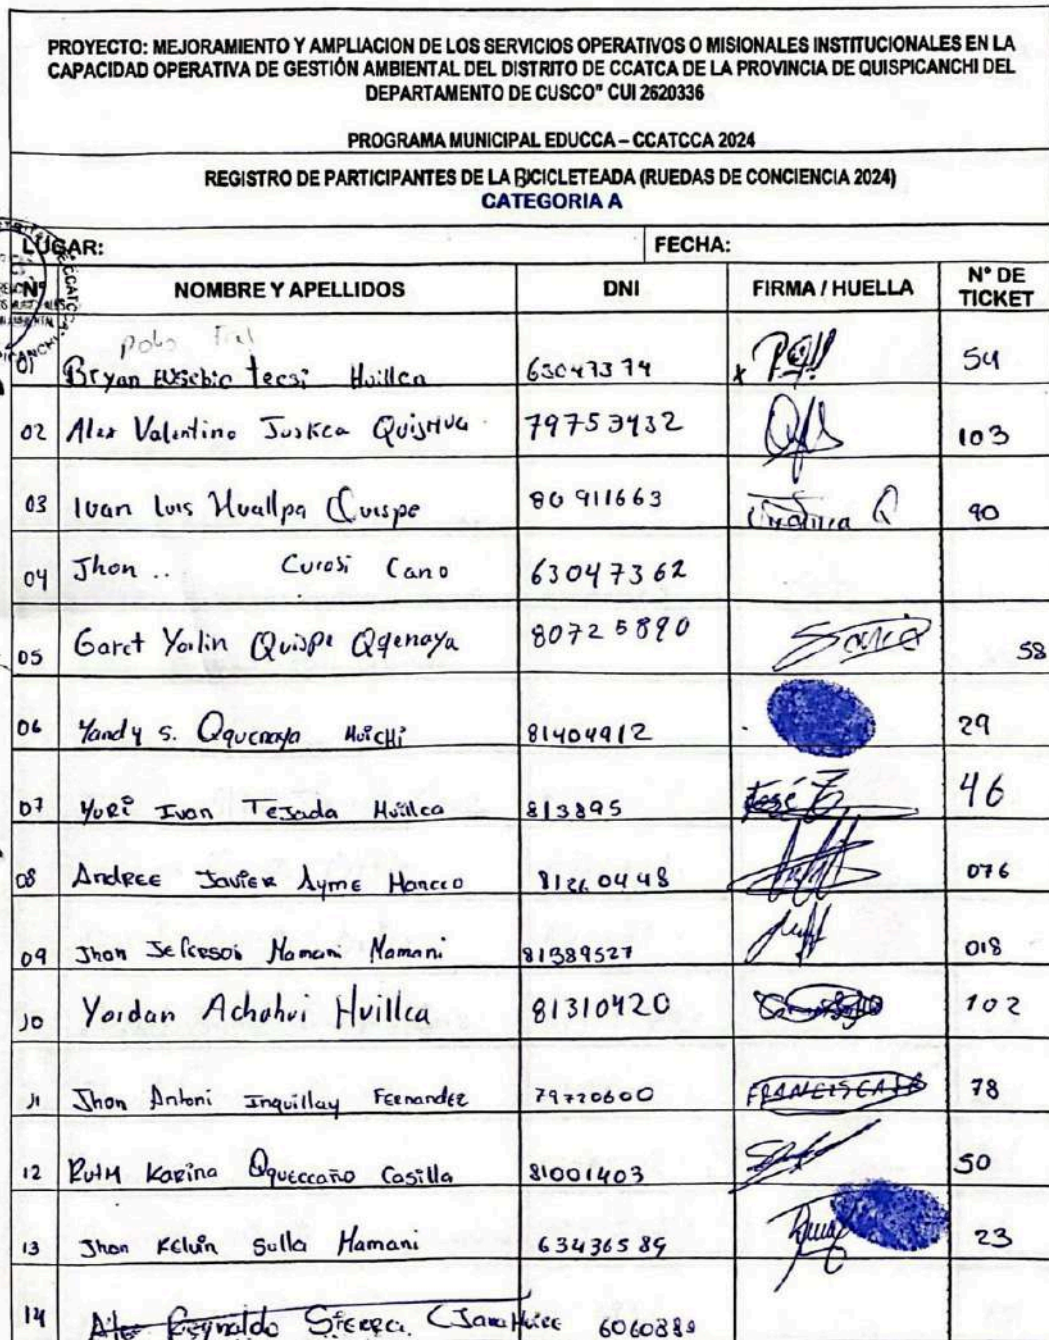 PROYECTO: MEJORAMIENTO Y AMPLIACION DE LOS SERVICIOS OPERATIVOS O MISIONALES INSTITUCIONALES EN LA
CAPACIDAD OPERATIVA DE GESTIÓN AMBIENTAL DEL DISTRITO DE CCATCA DE LA PROVINCIA DE QUISPICANCHI DEL
DEPARTAMENTO DE CUSCO" CUI 2620336
PROGRAMA MUNICIPAL EDUCCA – CCATCCA 2024
REGISTRO DE PARTICIPANTES DE LA BICICLETEADA (RUEDAS DE CONCIENCIA 2024)
CATEGORIA A
LUGAR: FECHA:
Nº NOMBRE Y APELLIDOS DNI FIRMA / HUELLA N° DE TICKET
Polo
01 Bryan Eusebio Tecsi Huillca 63047374 54
02 Alex Valentino Juskca 79753432 103
03 Ivan Luis Huallpa Quispe 80911663 Q 90
04 Jhon .. Curosi Cano 63047362
05 Garet Yorlin Quispe Qqenaya 80725890 Sonia 58
06 Yandy S. Oquenaya HuicHi 81404912 29
07 Yuri Ivan Tejada Huillca 813895 José 46
08 Andree Javier Ayme Hancco 81260448 076
09 Jhon Jefferson Mamani Mamani 81389527 018
10 Yordan Achahui Huillca 81310420 102
11 Jhon Antoni Inquillay Fernandez 79720600 FRANCISCA 78
12 Ruth Karina Oqueccaño Casilla 81001403 50
13 Jhon Kelvin Sulla Mamani 63436589 23
14 Reynaldo Sierra 6060880